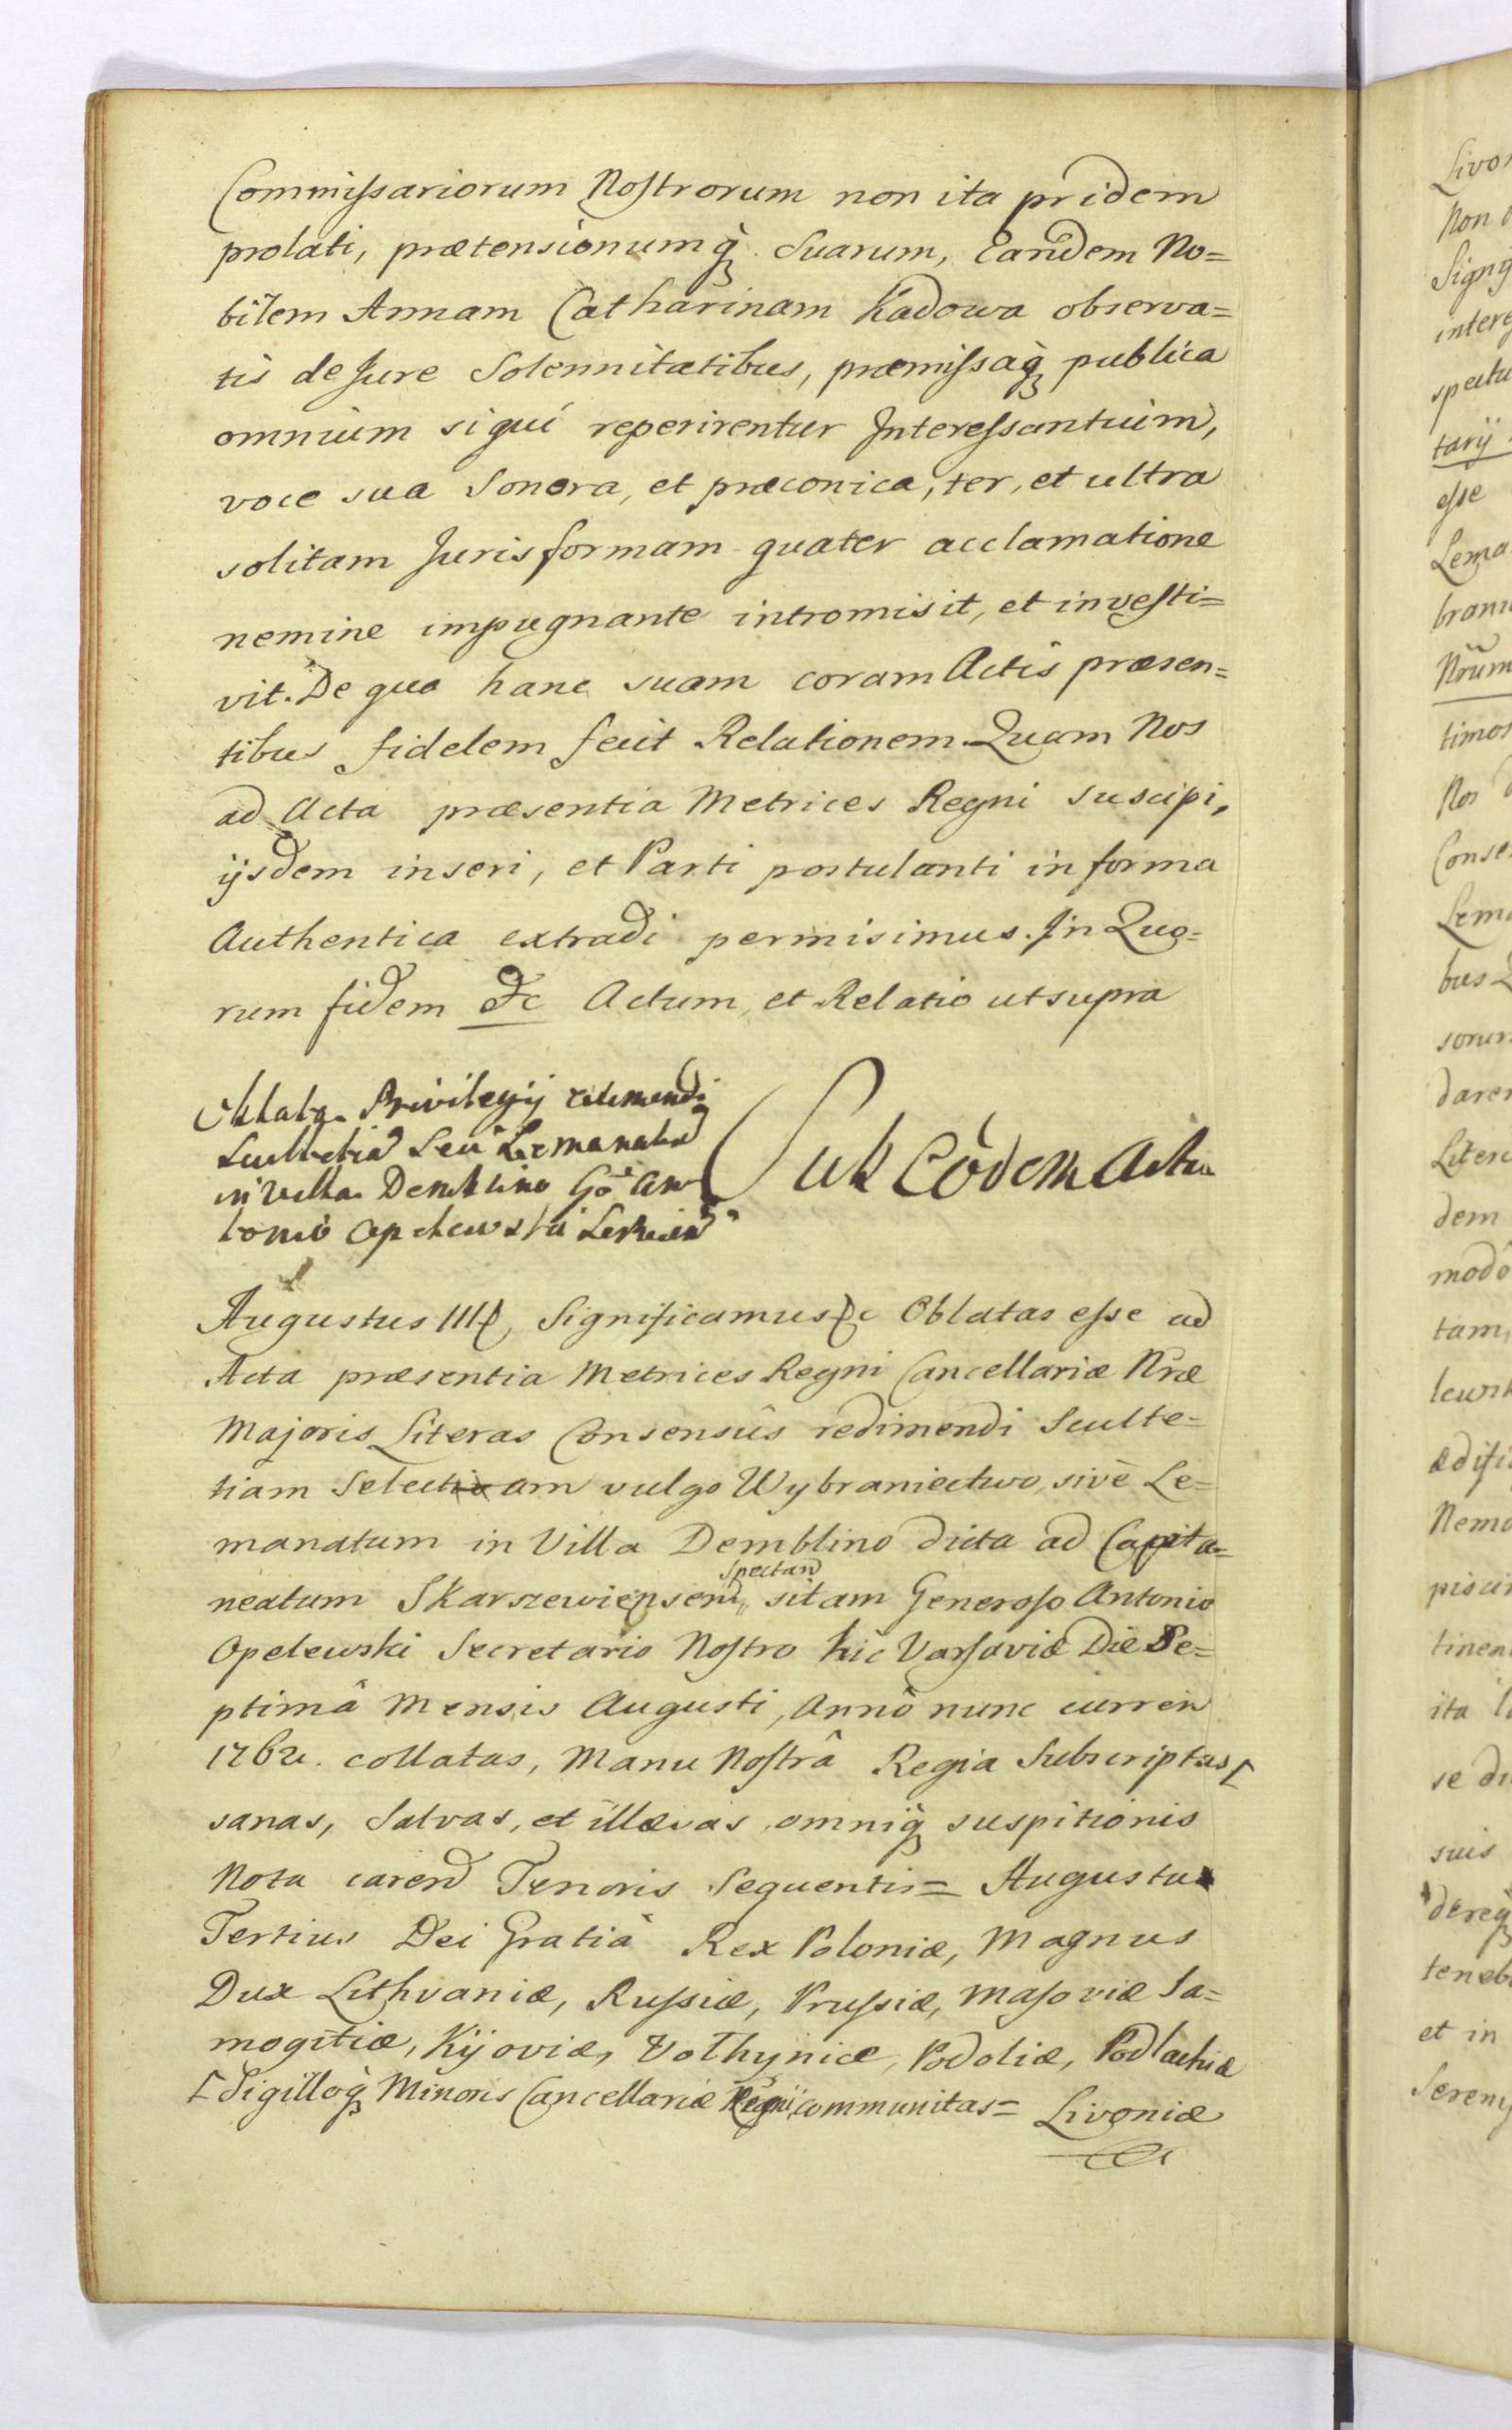 Commissariorum Nostrorum non ita pridem
prolati, prætensionumq̀ Suarum, Eandem No=
bilem Annam Catharinam Kadowa observa=
tis de Jure Solennitatibus, præmissaq̀ publica
omnium siqui reperirentur Interessantium,
voce sua Sonora, et præconica, ter, et ultra
solitam Juris formam quater acclamatione
nemine impugnante intromisit, et investi=
vit. De quo hanc suam coram Actis præsen=
tibus fidelem fecit Relationem Quam Nos
ad Acta præsentia Metrices Regni suscipi,
ijsdem inseri, et Parti postulanti in forma
Authentica extradi permisimus. In Quo=
rum fidem &c Actum, et Relatio ut supra
Oblata Privilegij redimendi
Scultetiā Seu Lemanatū
in Villa Demblino Gō An
tonio Opelewski
Sub Eôdem Actu
Augustus III Significamus &c Oblatas esse ad
Acta præsentia Metrices Regni Cancellariæ Nræ
Majoris Literas Consensûs redimendi Sculte=
tiam Selectioam vulgo Wybraniectwo, sivè Le=
manatum in Villa Demblino dicta ad Capita=
spectan
neatum Skarszewiensem sitam Generoso Antonio
Opelewski Secretario Nostro hic Varsaviæ Die Se=
ptimâ Mensis Augusti, Annô nunc curren
1762. collatas, Manu Nostrâ Regia Subscriptas [
sanas, Salvas, et illæsas omniq̀ suspitionis
Nota caren Tenoris Sequentis = Augustus
Tertius Dei Gratiâ Rex Poloniæ, Magnus
Dux Lithvaniæ, Russiæ, Prussiæ, Masoviæ Sa=
mogitiæ, Kijoviæ, Volhyniæ, Podoliæ, Podlachiæ
[ Sigilloq̀ Minoris Cancellariæ Regni communitas = Livoniæ